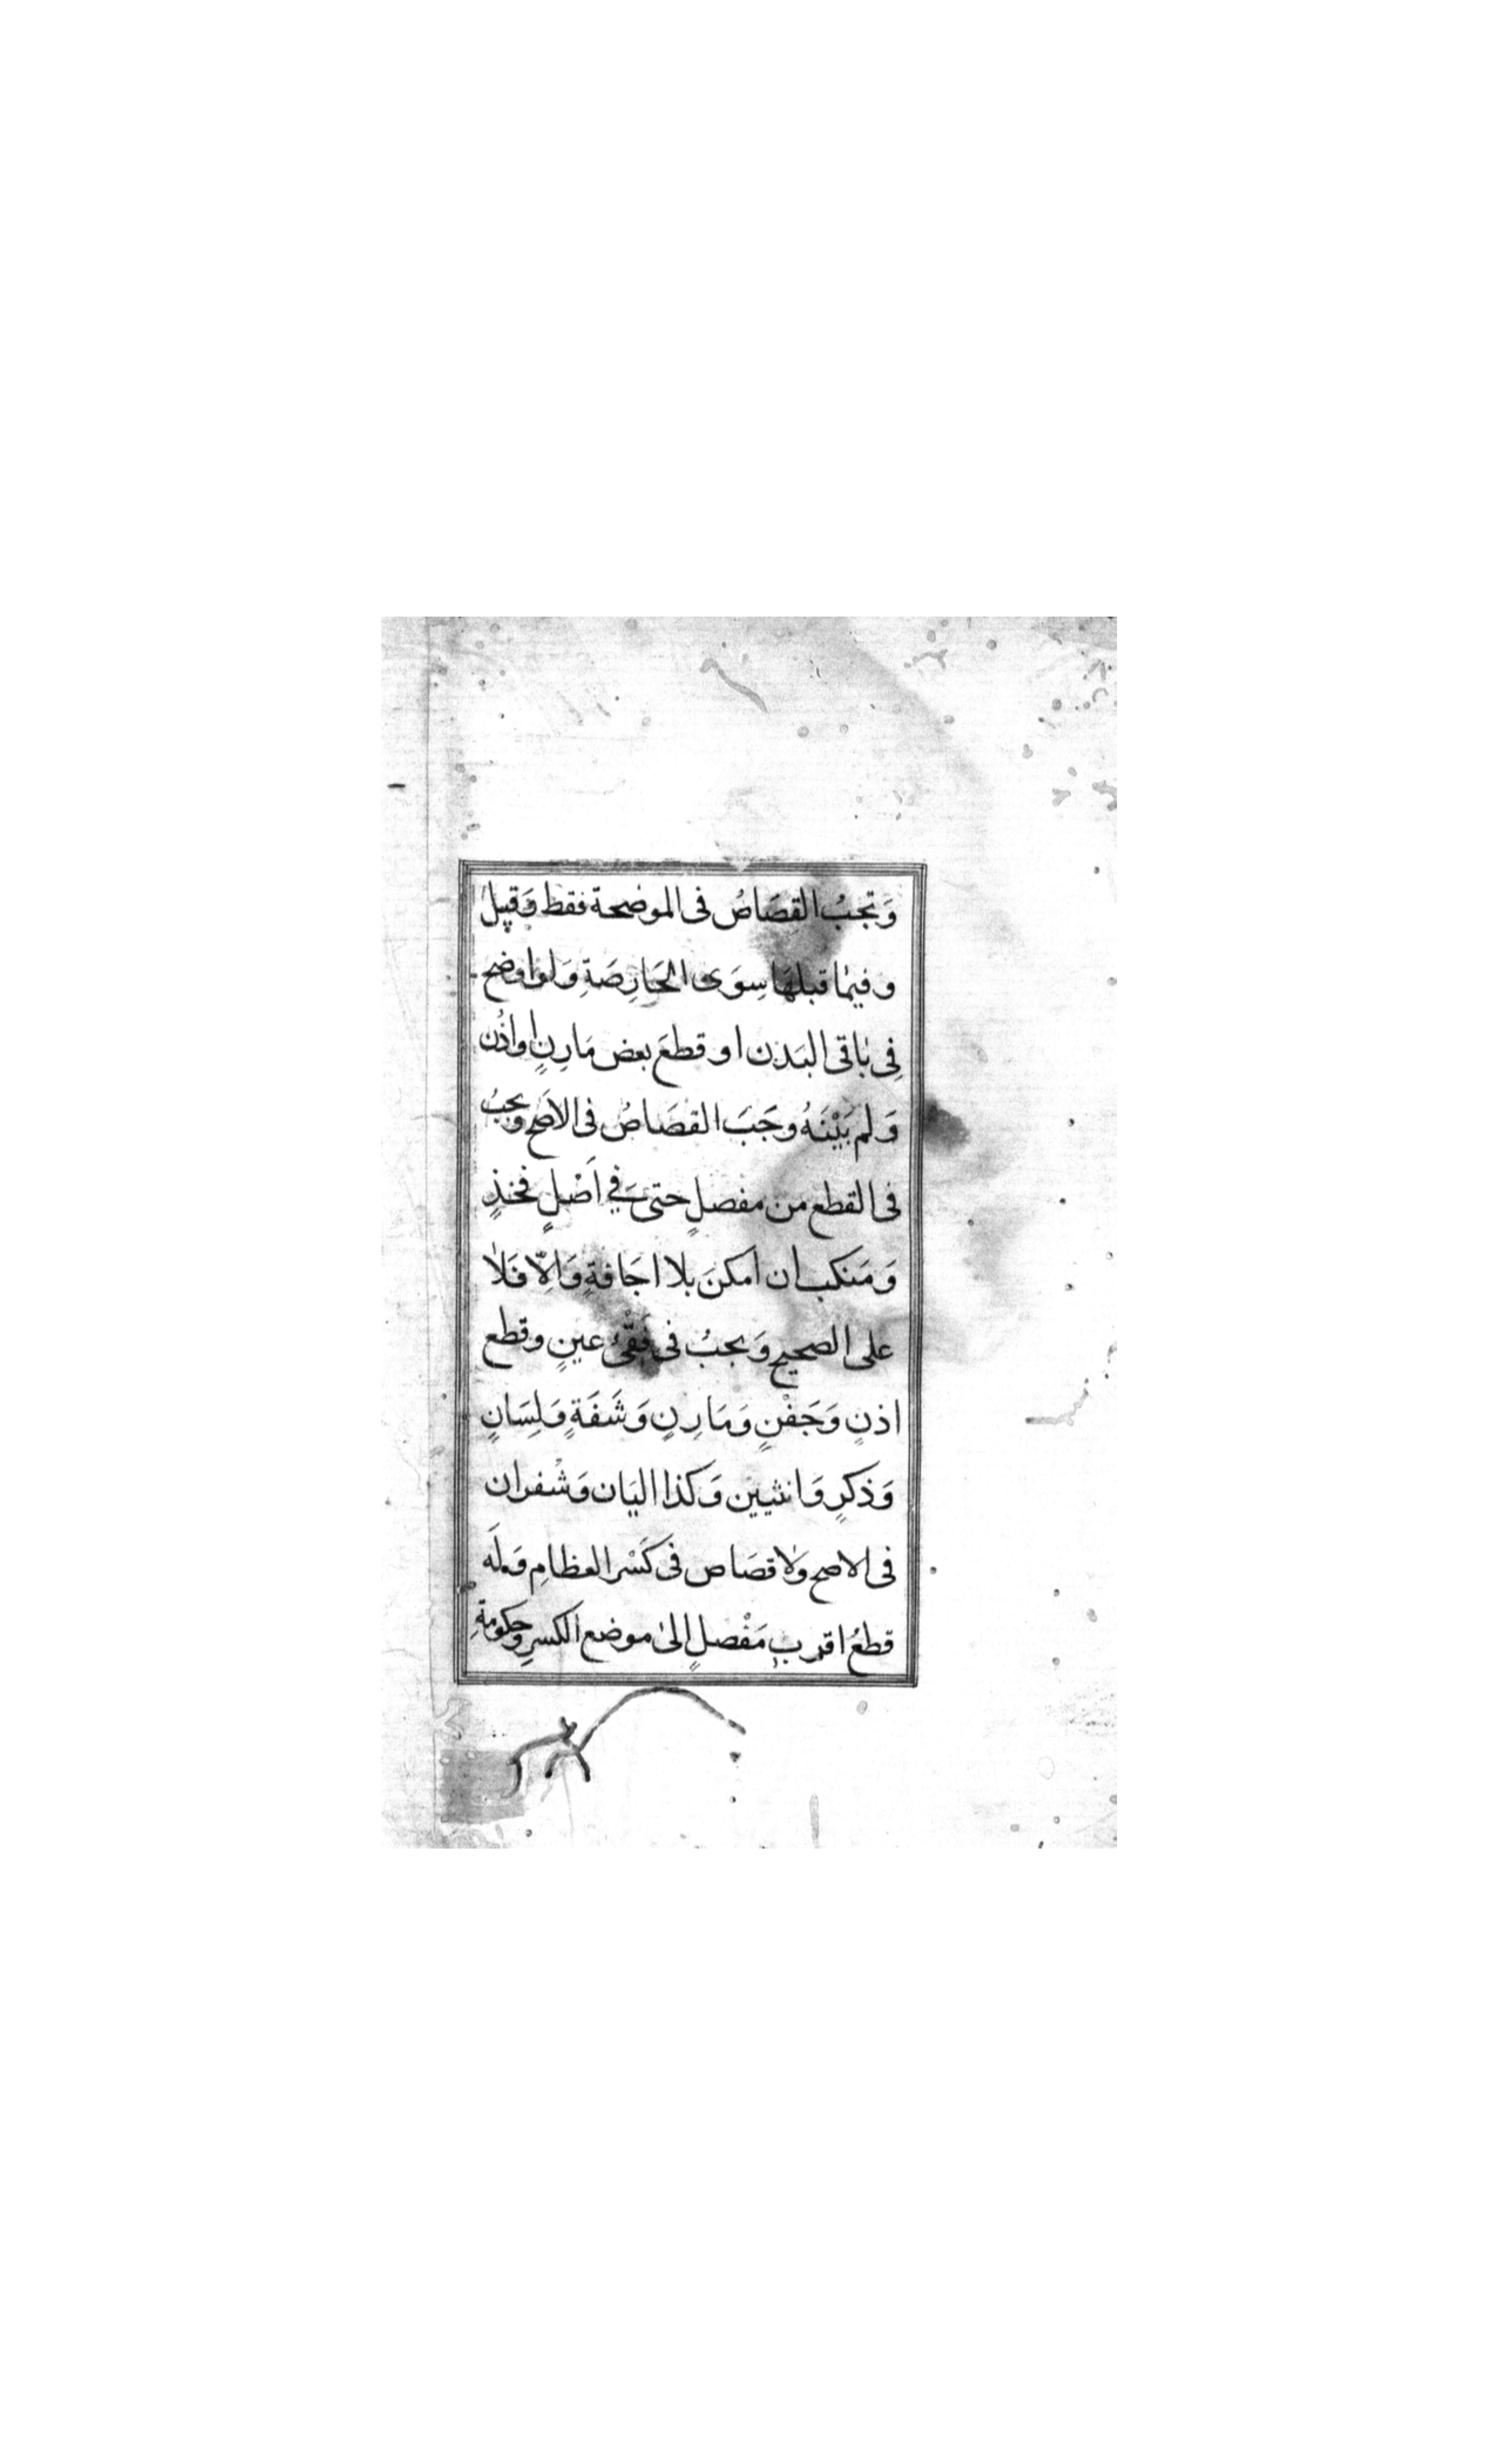 وَتجبُ القصَاصُ فى الموضحة فقط وَقيل
وفيما قبلهَا سِوَى الحَارِصَةِ وَلو اوضح
فِى باقى البَدن او قطعَ بعض مَارِنٍ او اذُن
وَلم يَبْنَهُ وجَبَ القصَاصُ فى الاصَح ويجبُ
فى القطع من مفصلٍ حتى في اَصْلٍ فخذٍ
وَمَنكب ان امكنَ بلا اجَافةٍ وَالّا فَلا
على الصحيح وَيجبُ فى فَقْئُ عينٍ وقطع
اذنٍ وَجَفْنٍ وَمَارِنٍ وَشَفَةٍ وَلِسَانٍ
وَذكرٍ وَانثيين وَكذا اليَان وَشُفران
فى الاصح وَلا قصَاص فى كَسْر العظامِ وَلَه
قطعُ اقربِ مَفْصلٍ الىٰ موضع الكسرِ وحكومةِ